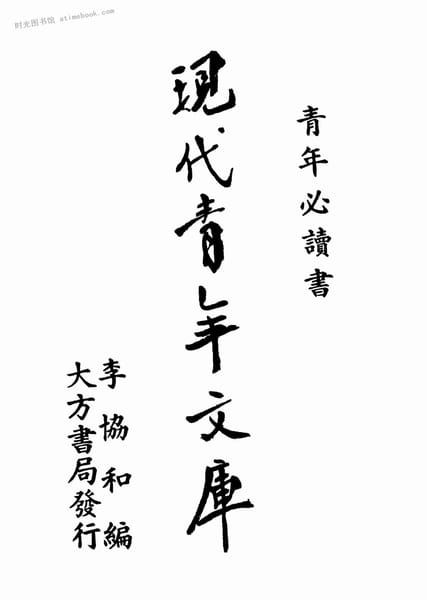 时光图书馆 atimebook.com
青年必讀書
現代青年文庫
李協和編
大方書局發行